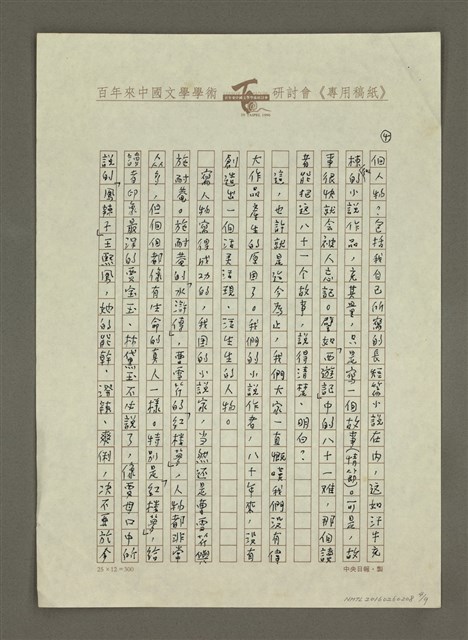 百年來中國文學學術研討會《專用稿紙》
④
個人物?包括我自己所寫的長短篇小說在內,近如汗牛充
棟的小說作品,充其量,只是寫一個故事(情節)。可是,故
事很快就會被人忘記。譬如「西遊記」中的八十一難,那個讀
者能把這八十一個故事,說得清楚、明白?
這,也許就是迄今為止,我們大家一直慨嘆我們沒有偉
大作品產生的原因了。我們的小說作者,八十年來,沒有
創造出一個活靈活現、活生生的人物。
寫人物寫得成功的,我國的小說家,當然還是曹雪芹與
施耐菴。施耐菴的「水滸傳」,曹雪芹的「紅樓夢」,人物都非常
众多,但個個都像有生命的真人一樣。特別是「紅樓夢」,給
讀者印象最深的賈宝玉、林黛玉不必說了,像賈母口中所
說的「鳳辣子」王熙鳳,她的能幹、潑辣、爽俐,决不要於今
25×12=300
中央日報・製
NMTL20160260208
4/9